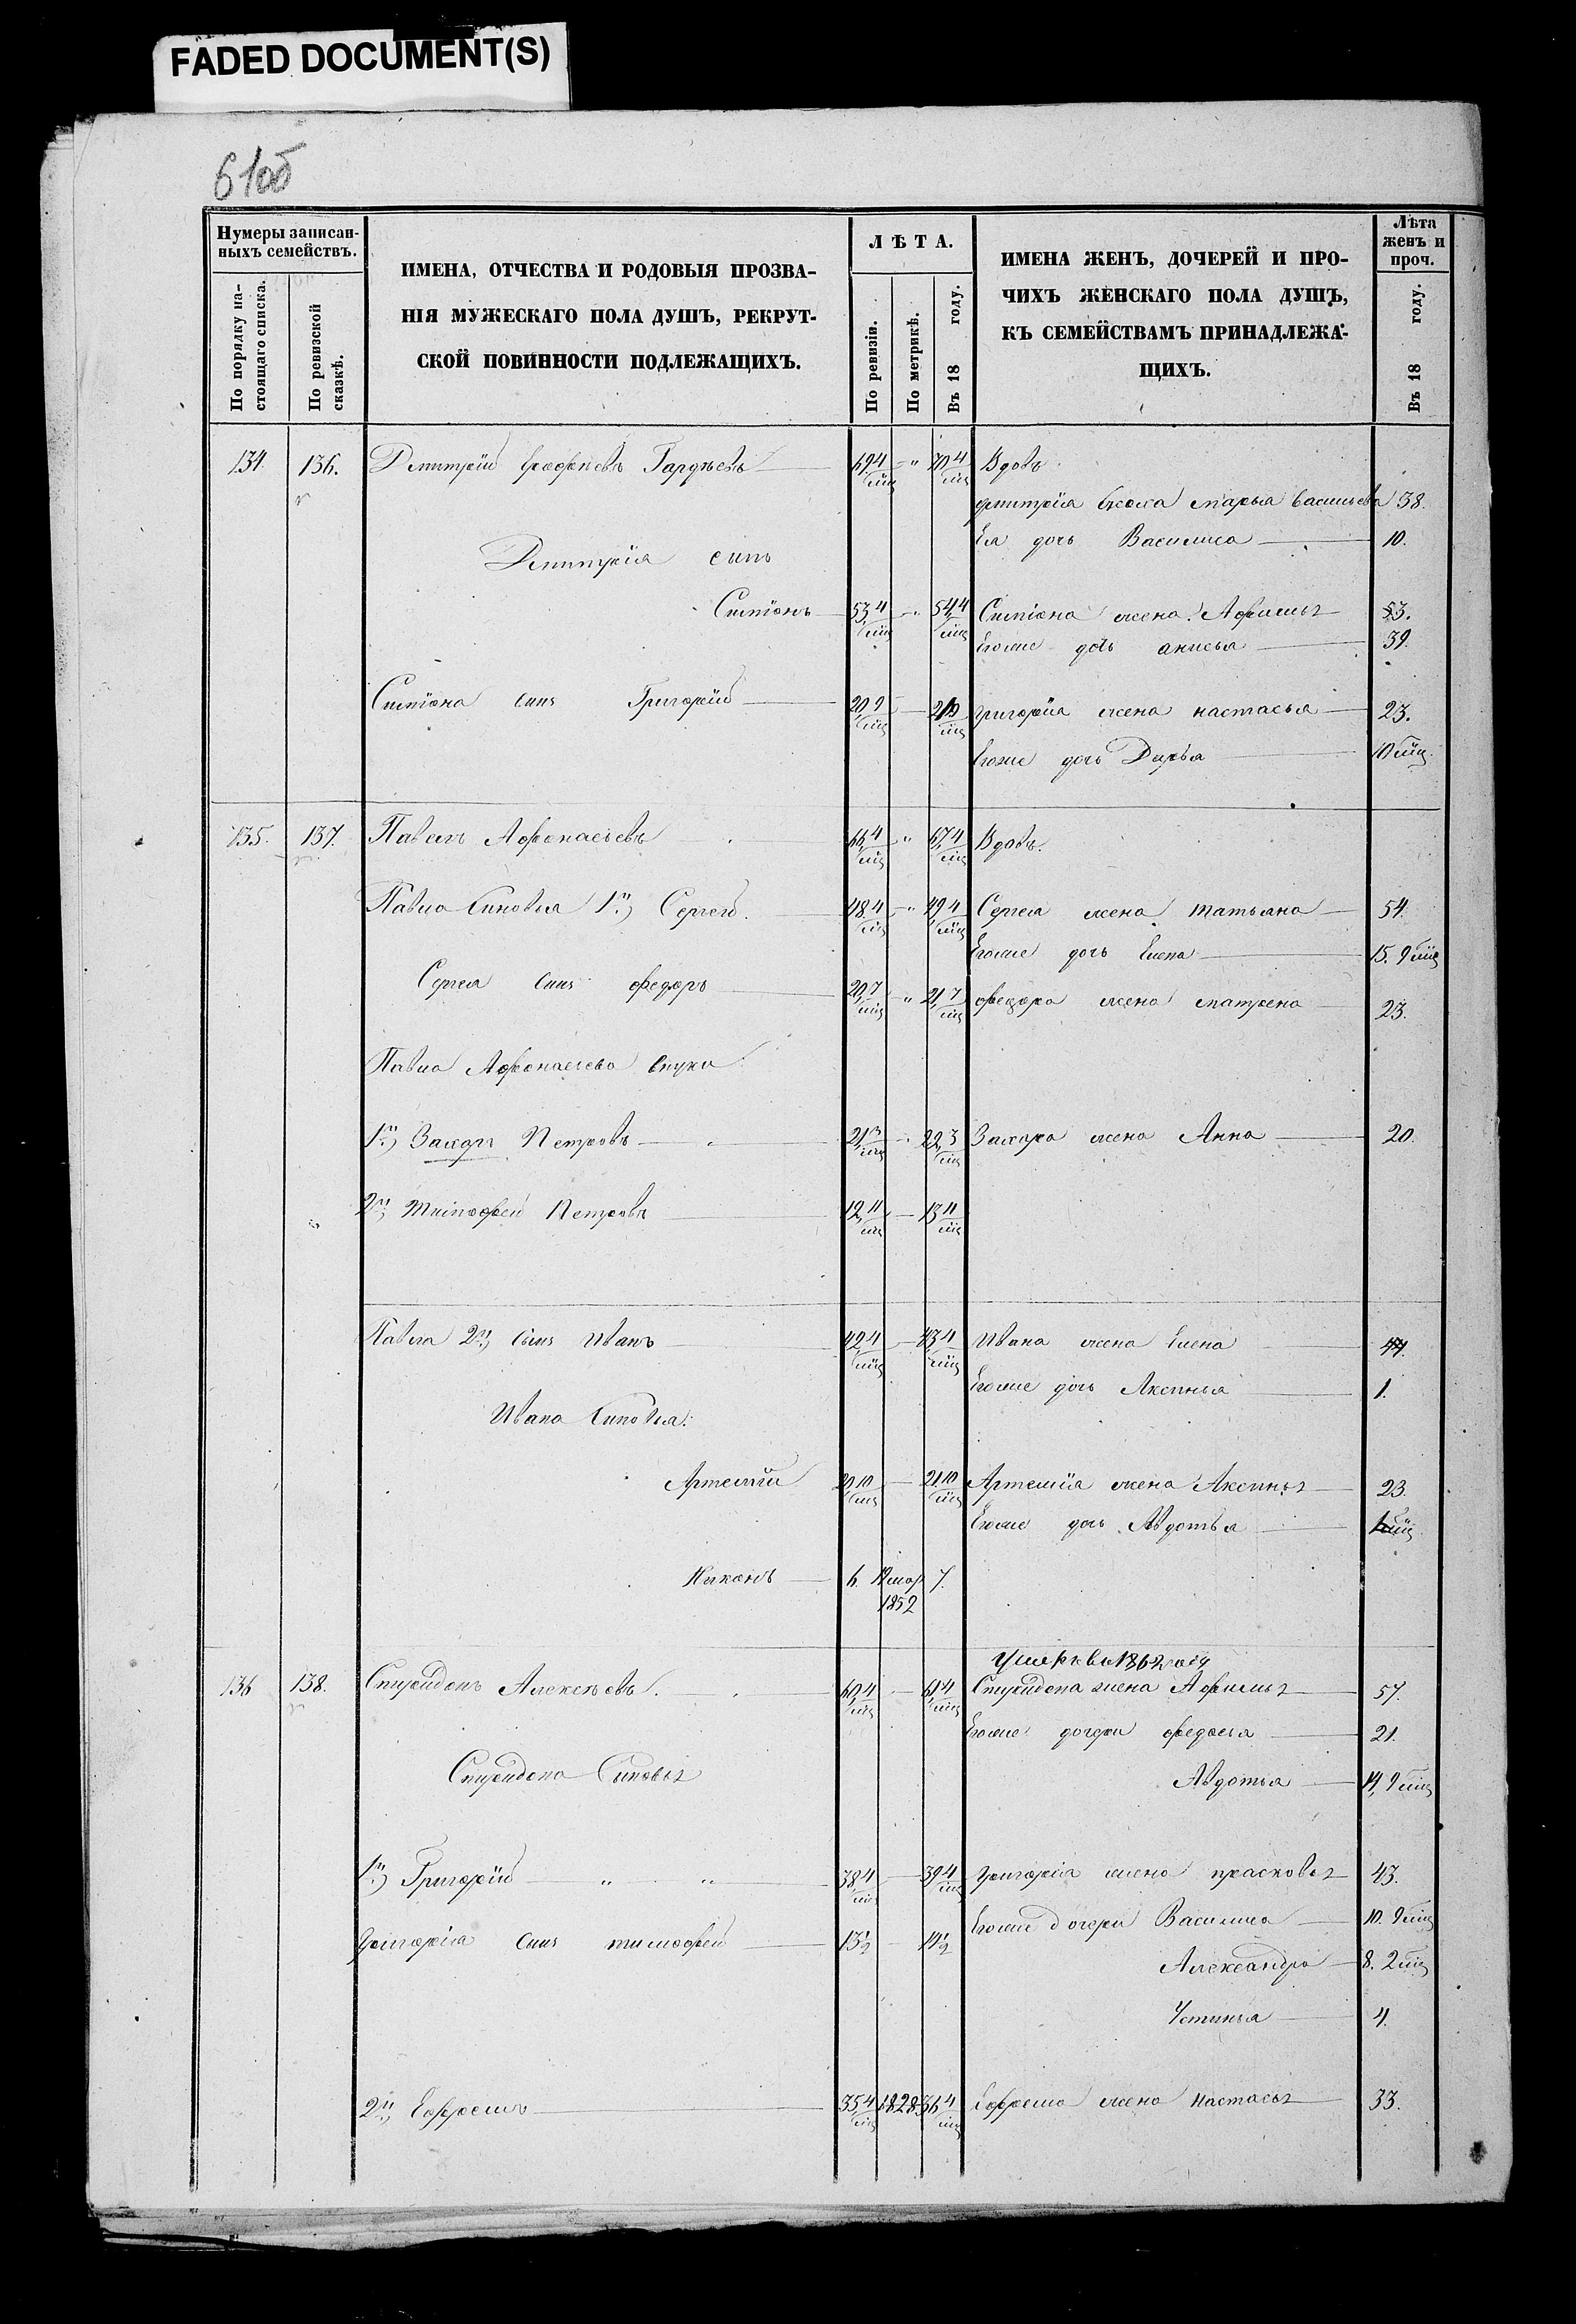 FADED DOCUMENT(S)
61об
Нумеры записан-
ныхъ семействъ.
По порядку на-
стоящаго списка.
По ревизской
сказкѣ.
ИМЕНА, ОТЧЕСТВА И РОДОВЫЯ ПРОЗВА-
НІЯ МУЖЕСКАГО ПОЛА ДУШЪ, РЕКРУТ-
СКОЙ ПОВИННОСТИ ПОДЛЕЖАЩИХЪ.
ЛѢТА.
По ревизіи.
По метрикѣ.
Въ 18 году.
ИМЕНА ЖЕНЪ, ДОЧЕРЕЙ И ПРО-
ЧИХЪ ЖЕНСКАГО ПОЛА ДУШЪ,
КЪ СЕМЕЙСТВАМЪ ПРИНАДЛЕЖА-
ЩИХЪ.
Лѣта
женъ и
проч.
Въ 18 году.
134. 136. Дмитрій Гардѣевъ 69,4/мѣц " 70,4/мѣц Вдовъ
Дмитрія марья васильева 38.
Ея дочь Василиса 10.
Дмитрія сынъ
Симіонъ 53,4/мѣц " 54,4/мѣц Симіона жена Афимья 53.
Егоже дочь анисья 39.
Симіона сынъ Григорій 20,9/мѣц 21,9/мѣц григорія жена настасья 23.
Егоже дочь Дарья 10 мѣц.
135. 137. Павелъ Афонасьевъ 66,4/мѣц " 67,4/мѣц Вдовъ.
Павла сыновья 1й) Сергей. 48,4/мѣц " 49,4/мѣц Сергея жена татьяна 54.
Егоже дочь Елена 15. 9 мѣц
Сергея сынъ федоръ 20,7/мѣц " 21,7/мѣц федора жена матрена 23.
Павла Афонасьева внуки
1й) Захаръ Петровъ 21,3/мѣц 22,3/мѣц Захара жена Анна 20.
2й) тимофей Петровъ 12,11/мѣц 13,11/мѣц
Павла 2й) сынъ Иванъ 42,4/мѣц 43,4/мѣц Ивана жена Елена 44.
Егоже дочь Аксинья 1.
Ивана сыновья:
Артемій 20,10/мѣц 21,10/мѣц Артемія жена Аксинья 23.
Егоже дочь Авдотья мѣц
Никонъ 6. 1852 7.
Умерква 1862 году
136 138. Спиридонъ Алексѣевъ. 60,4/мѣц 61,4/мѣц Спиридона жена Афимья 57.
Егоже дочери федосья 21.
Спиридона сыновья Авдотья 14, 9 мѣц
1й) Григорій " " 38,4/мѣц 39,4/мѣц григорія жена прасковья 43.
Егоже дочери Василиса 10. 9 мѣц
григорія сынъ тимофей 13½ 14½
Александра 8. 2 мѣц
Устинья 4.
2й) Ефремъ 35,4/мѣц 1828. 36,4/мѣц Ефрема жена настасья 33.